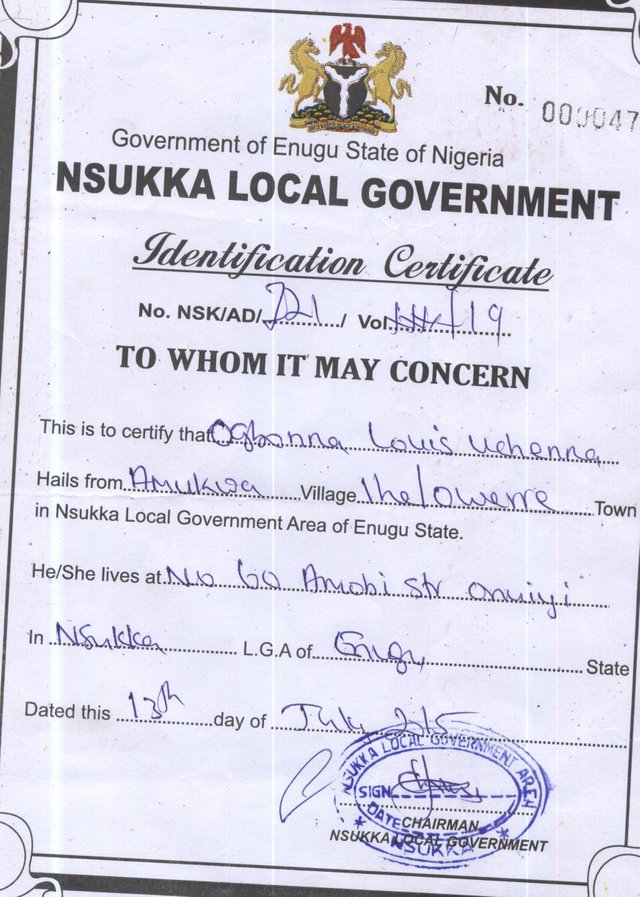 No. 000047
Government of Enugu State of Nigeria
NSUKKA LOCAL GOVERNMENT
Identification Certificate
No. NSK/AD/221/ Vol. /19
TO WHOM IT MAY CONCERN
This is to certify that Ogbonna Louis Uchenna
Hails from Amukwa Village Ihe/owerre Town
in Nsukka Local Government Area of Enugu State.
He/She lives at No 60 Amobi str onuiyi
In Nsukka L.G.A of Enugu State
Dated this 13th day of July 
NSUKKA LOCAL GOVERNMENT AREA
SIGN
DATE
CHAIRMAN
NSUKKA LOCAL GOVERNMENT
NSUKKA